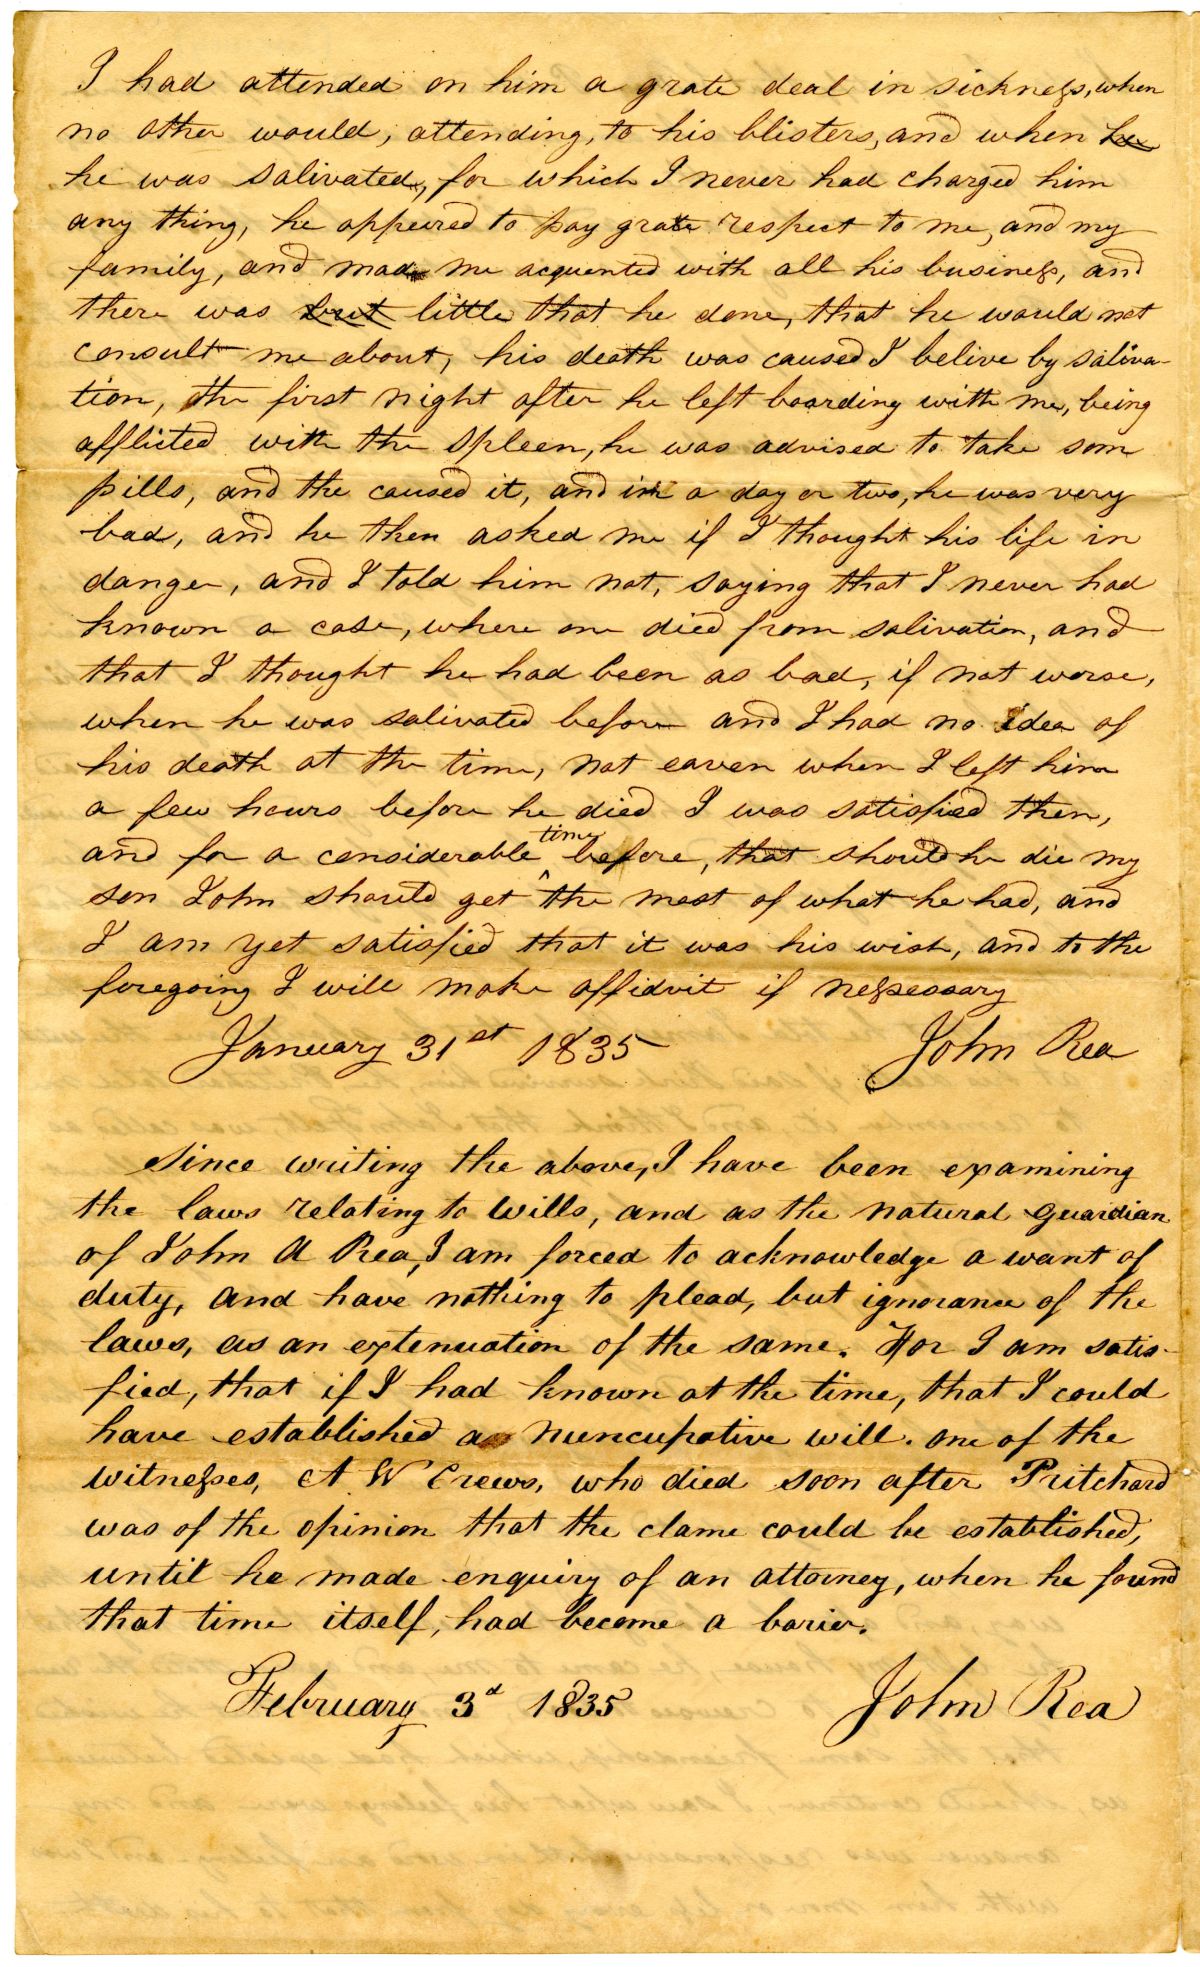 I had attended on him a grate deal in sickness, when
no other would, attending, to his blisters, and when he
he was salivated, for which I never had charged him
any thing, he appeered to pay grate respect to me, and my
family, and made me acquented with all his business, and
there was but little that he done, that he would not
consult me about, his death was caused I belive by saliva-
tion, the first night after he left boarding with me, being
afflicted with the spleen, he was advised to take som
pills, and the caused it, and in a day or two, he was very
bad, and he then asked me if I thought his life in
danger, and I told him not, saying that I never had
known a case, where one died from salivation, and
that I thought he had been as bad, if not worse,
when he was salivated before and I had no idea of
his death at the time, not eaven when I left him
a few hours before he died I was satisfied then,
and for a considerable time before, that should he die my
son John should get the most of what he had, and
I am yet satisfied that it was his wish, and to the
foregoing I will make affidvit if nessessary
January 31st 1835 John Rea
Since writing the above, I have been examining
the laws relating to wills, and as the natural guardian
of John A Rea, I am forced to acknowledge a want of
duty, and have nothing to plead, but ignorance of the
laws, as an extenuation of the same. For I am satis-
fied, that if I had known at the time, that I could
have established a nuncupative will. one of the
witnesses, A W Crews, who died soon after Pritchard
was of the opinion that the clame could be established,
until he made enquiry of an attorney, when he found
that time itself, had become a barier.
February 3d 1835 John Rea